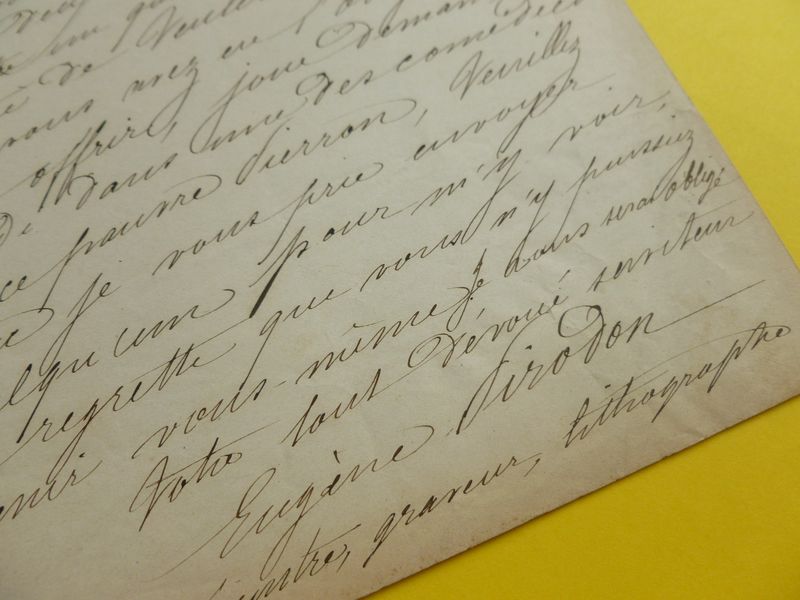 de
vous avez eu l'
offrir, joue deman
dans une des comédies
ce pauvre Pierron, Veuillez
je vous prie envoyer
quelqu'un pour m'y voir,
regrette que vous n'y puissiez
venir vous-même je vous serai obligé
Votre tout dévoué serviteur
Eugène Pirodon
peintre, graveur, lithographe